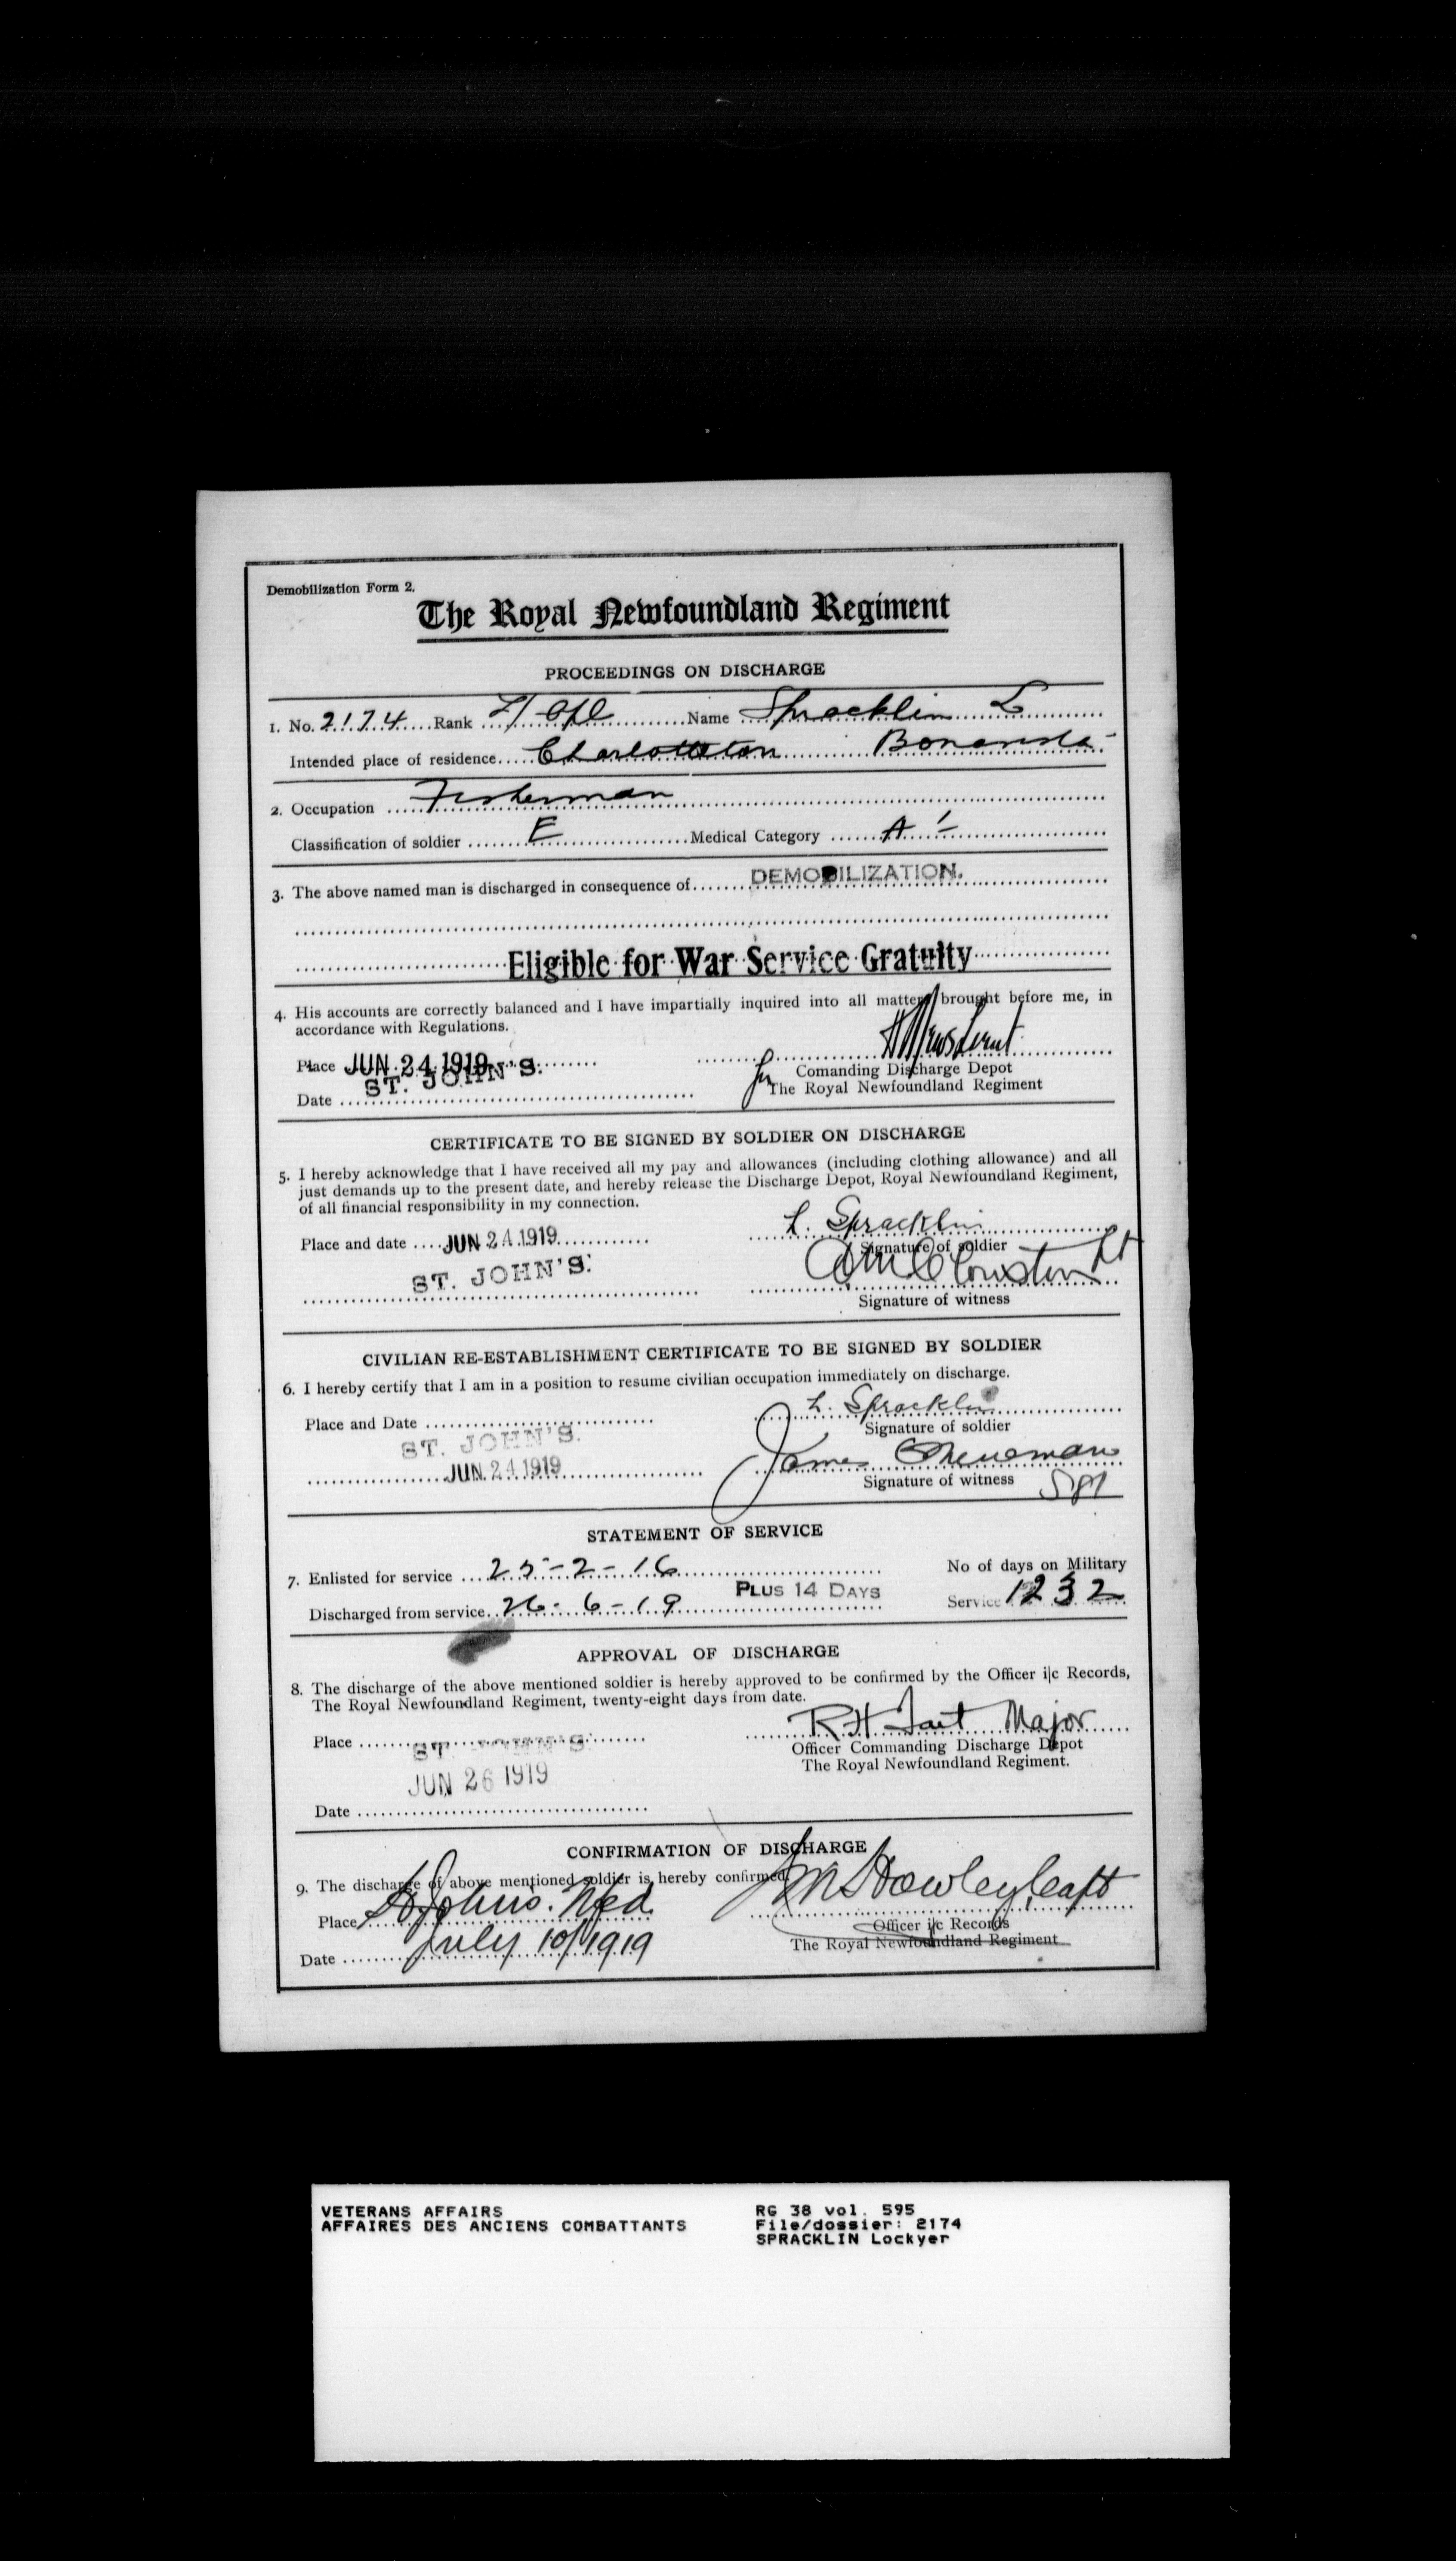 Demobilization Form 2.
The Royal Newfoundland Regiment
PROCEEDINGS ON DISCHARGE
1. No. 2174 Rank L/Cpl Name Spracklin L
Intended place of residence Charlotteton Bonavista
2. Occupation Fisherman
Classification of soldier E Medical Category A 1
3. The above named man is discharged in consequence of DEMOBILIZATION.
Eligible for War Service Gratuity
4. His accounts are correctly balanced and I have impartially inquired into all matters brought before me, in
accordance with Regulations.
Place JUN 24 1919
ST. JOHN'S.
Comanding Discharge Depot
Date
for The Royal Newfoundland Regiment
CERTIFICATE TO BE SIGNED BY SOLDIER ON DISCHARGE
5. I hereby acknowledge that I have received all my pay and allowances (including clothing allowance) and all
just demands up to the present date, and hereby release the Discharge Depot, Royal Newfoundland Regiment,
of all financial responsibility in my connection.
L. Spracklin
Place and date JUN 24 1919
Signature of soldier
ST. JOHN'S.
Clouston Lt
Signature of witness
CIVILIAN RE-ESTABLISHMENT CERTIFICATE TO BE SIGNED BY SOLDIER
6. I hereby certify that I am in a position to resume civilian occupation immediately on discharge.
L. Spracklin
Place and Date
Signature of soldier
ST. JOHN'S.
James
JUN 24 1919
Signature of witness
STATEMENT OF SERVICE
7. Enlisted for service 25-2-16
No of days on Military
Discharged from service 26-6-19 PLUS 14 DAYS Service 1232
APPROVAL OF DISCHARGE
8. The discharge of the above mentioned soldier is hereby approved to be confirmed by the Officer i|c Records,
The Royal Newfoundland Regiment, twenty-eight days from date.
R H Tait Major
Place ST. JOHN'S
Officer Commanding Discharge Depot
The Royal Newfoundland Regiment.
JUN 26 1919
Date
CONFIRMATION OF DISCHARGE
9. The discharge of above mentioned soldier is hereby confirmed
Howley Capt
Place St Johns. Nfld.
Officer i|c Records
Date July 10/1919
The Royal Newfoundland Regiment
VETERANS AFFAIRS
AFFAIRES DES ANCIENS COMBATTANTS
RG 38 vol. 595
File/dossier: 2174
SPRACKLIN Lockyer